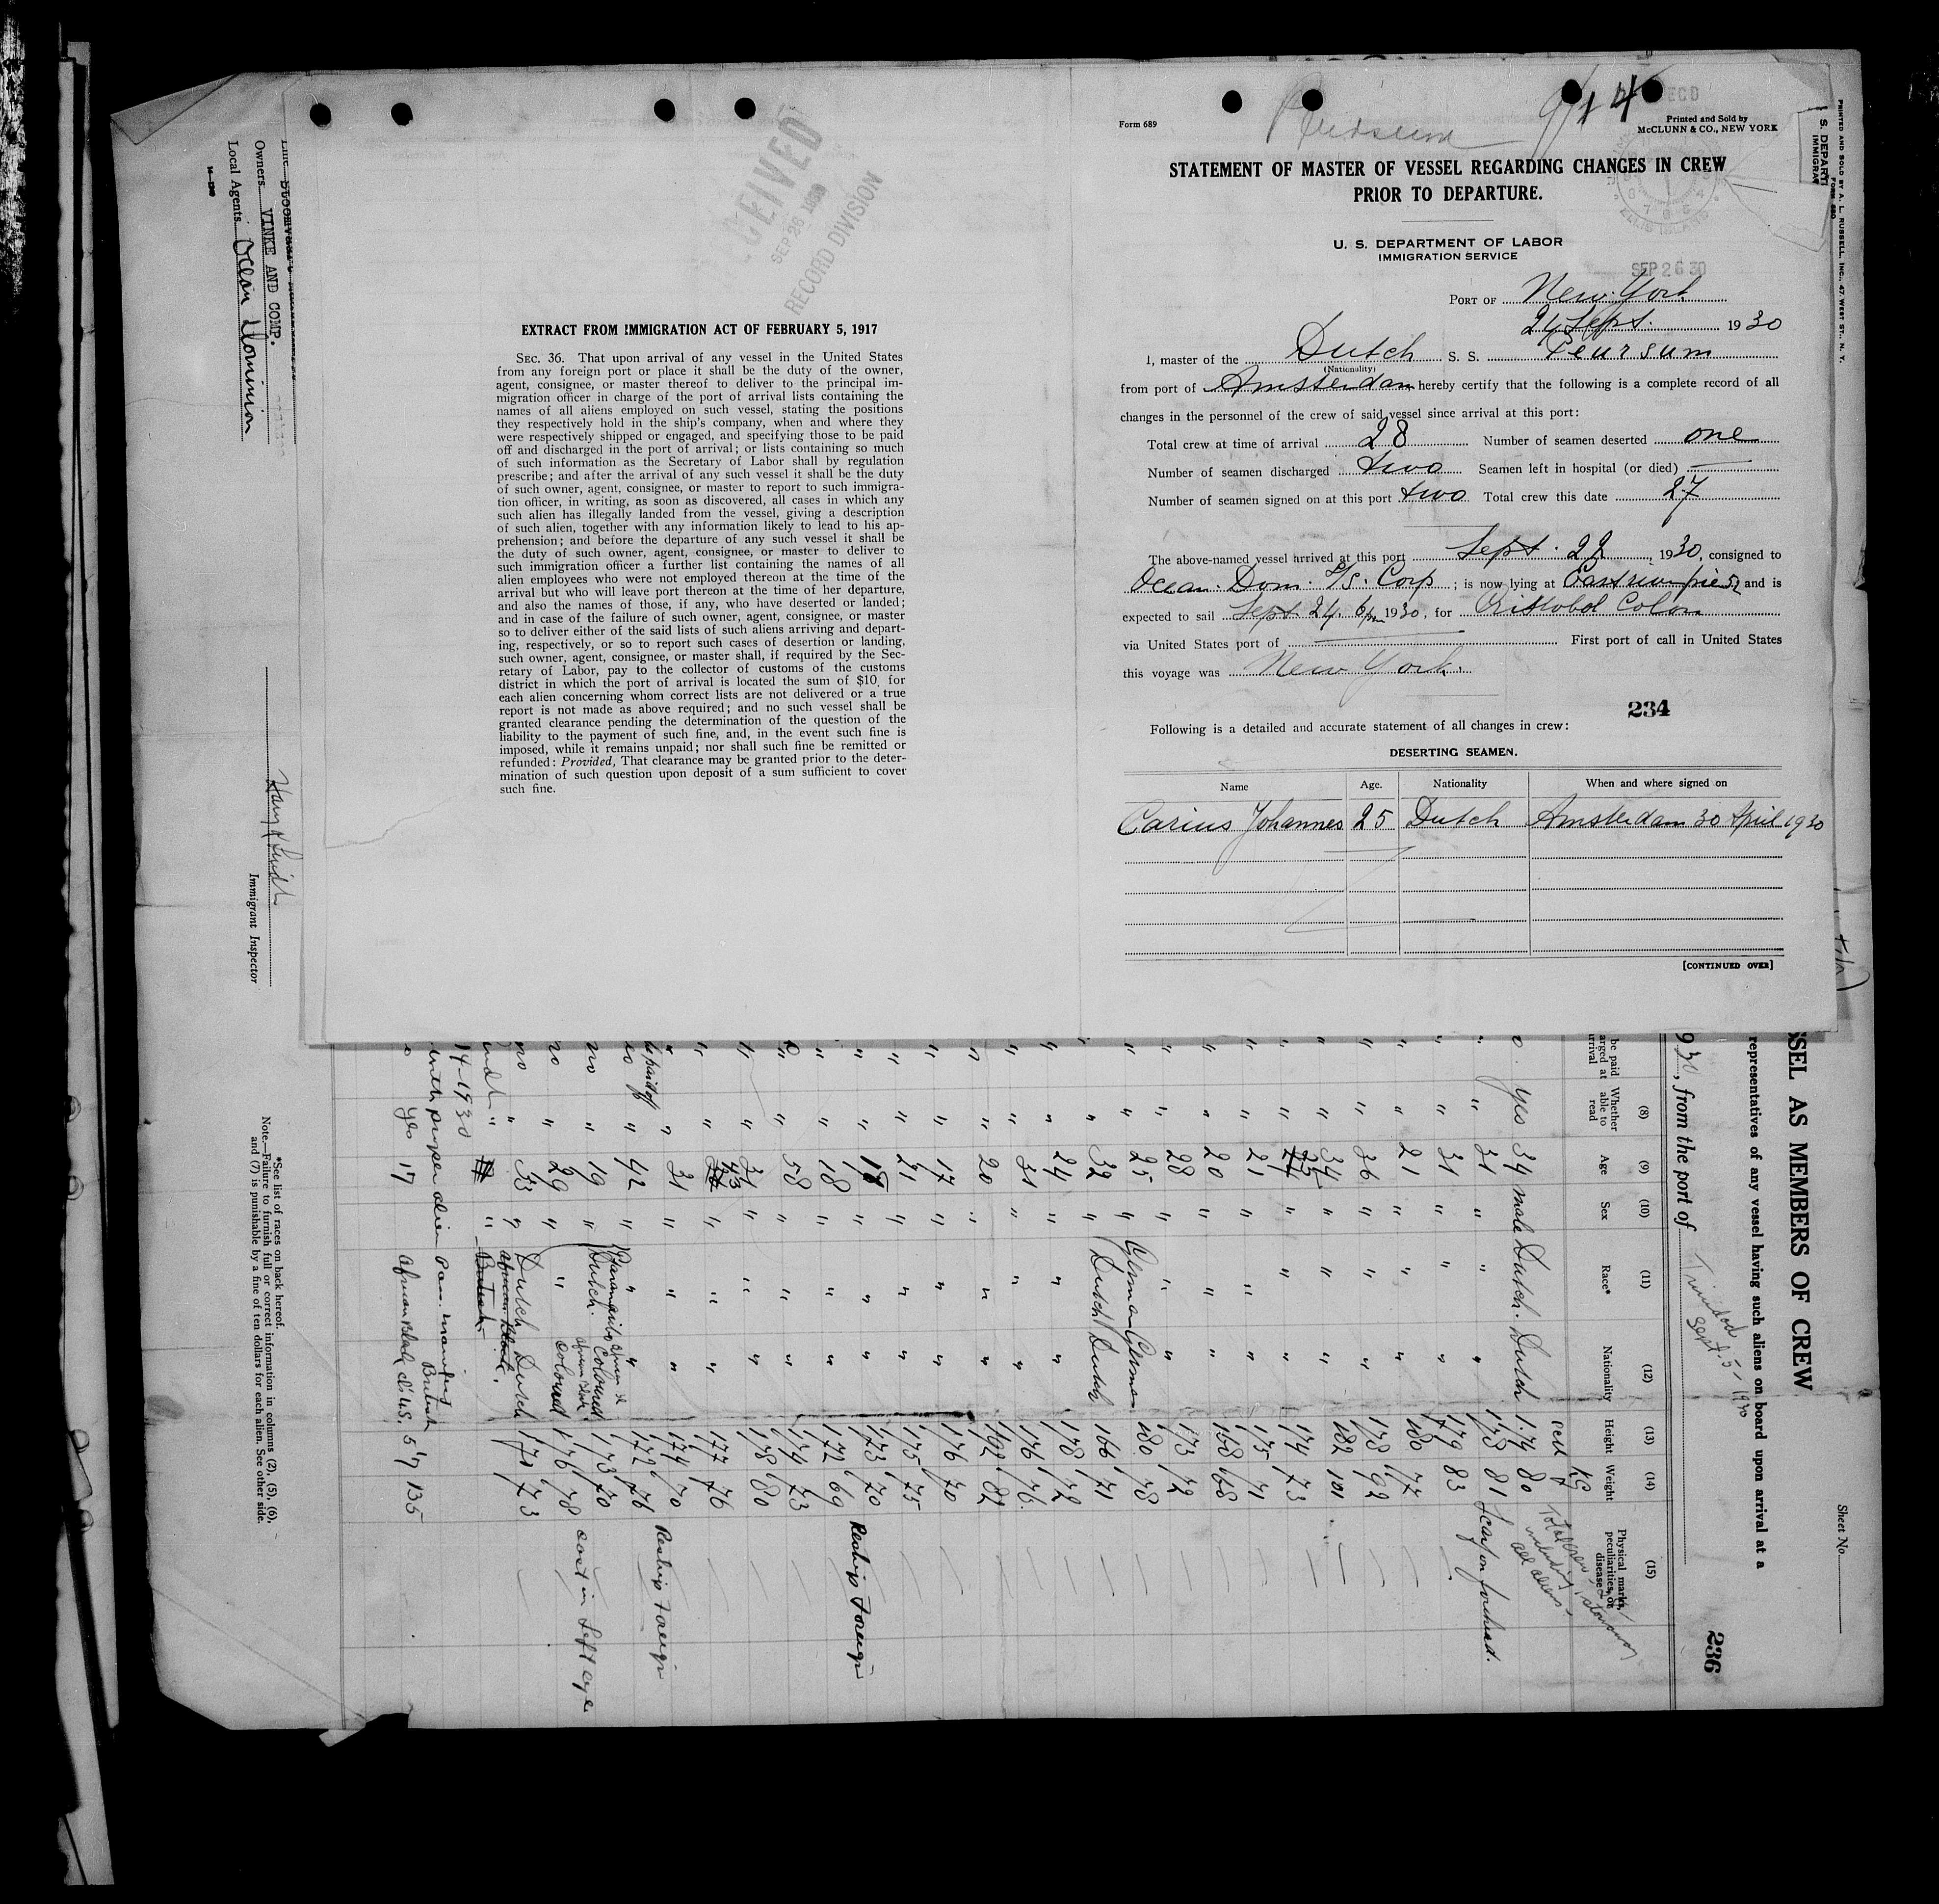 Form 689
9/14
Printed and Sold by
McCLUNN & CO., NEW YORK
STATEMENT OF MASTER OF VESSEL REGARDING CHANGES IN CREW
PRIOR TO DEPARTURE.
U. S. DEPARTMENT OF LABOR
IMMIGRATION SERVICE
SEP 26 30
PORT OF New York
24 Sept. 1930
I, master of the Dutch S. S. Peursum
(Nationality)
from port of Amsterdam hereby certify that the following is a complete record of all
changes in the personnel of the crew of said vessel since arrival at this port:
Total crew at time of arrival 28 Number of seamen deserted one
Number of seamen discharged two Seamen left in hospital (or died) —
Number of seamen signed on at this port two Total crew this date 27
The above-named vessel arrived at this port Sept. 22, 1930, consigned to
Ocean Dom. S/S. Corp; is now lying at and is
expected to sail Sept 24. 6pm 1930, for Cristobal Colon
via United States port of First port of call in United States
this voyage was New York.
234
Following is a detailed and accurate statement of all changes in crew:
DESERTING SEAMEN.
Name Age. Nationality When and where signed on
Carius Johannes 25 Dutch Amsterdam 30 April 1930
[CONTINUED OVER]
RECEIVED
SEP 26 1930
RECORD DIVISION
EXTRACT FROM IMMIGRATION ACT OF FEBRUARY 5, 1917
SEC. 36. That upon arrival of any vessel in the United States
from any foreign port or place it shall be the duty of the owner,
agent, consignee, or master thereof to deliver to the principal im-
migration officer in charge of the port of arrival lists containing the
names of all aliens employed on such vessel, stating the positions
they respectively hold in the ship's company, when and where they
were respectively shipped or engaged, and specifying those to be paid
off and discharged in the port of arrival; or lists containing so much
of such information as the Secretary of Labor shall by regulation
prescribe; and after the arrival of any such vessel it shall be the duty
of such owner, agent, consignee, or master to report to such immigra-
tion officer, in writing, as soon as discovered, all cases in which any
such alien has illegally landed from the vessel, giving a description
of such alien, together with any information likely to lead to his ap-
prehension; and before the departure of any such vessel it shall be
the duty of such owner, agent, consignee, or master to deliver to
such immigration officer a further list containing the names of all
alien employees who were not employed thereon at the time of the
arrival but who will leave port thereon at the time of her departure,
and also the names of those, if any, who have deserted or landed;
and in case of the failure of such owner, agent, consignee, or master
so to deliver either of the said lists of such aliens arriving and depart-
ing, respectively, or so to report such cases of desertion or landing,
such owner, agent, consignee, or master shall, if required by the Sec-
retary of Labor, pay to the collector of customs of the customs
district in which the port of arrival is located the sum of $10 for
each alien concerning whom correct lists are not delivered or a true
report is not made as above required; and no such vessel shall be
granted clearance pending the determination of the question of the
liability to the payment of such fine, and, in the event such fine is
imposed, while it remains unpaid; nor shall such fine be remitted or
refunded: Provided, That clearance may be granted prior to the deter-
mination of such question upon deposit of a sum sufficient to cover
such fine.
PRINTED AND SOLD BY A. L. RUSSELL, INC., 47 WEST ST., N. Y.
FORM 680
S. DEPART
IMMIGRAT
Sheet No.
SSEL AS MEMBERS OF CREW
representatives of any vessel having such aliens on board upon arrival at a
930, from the port of Trinidad Sept. 5, 1930
236
be paid arged at arrival
(8) Whether able to read
(9) Age
(10) Sex
(11) Race*
(12) Nationality
(13) Height
(14) Weight
(15) Physical marks, peculiarities, or disease
yes 34 male Dutch. Dutch 1.74 80
" 31 " " " 178 81 Scar on forehead.
" 31 " " " 179 83
" 21 " " " 180 77
" 36 " " " 178 92
" 34 " " " 182 101
" " " " 174 73
" 21 " " " 175 71
" 20 " " " 168 68
" 28 " " " 173 72
" 25 " German German 180 78
" 32 " Dutch Dutch 166 71
" 24 " " " 178 72
" 31 " " " 176 76
" 20 " " " 192 82
" 17 " " " 176 70
" 21 " " " 175 75
" 18 " " " 173 70 Reship Foreign
" 18 " " " 172 69
" 58 " " " 174 73
" 31 " " " 178 80
" 43 " " " 177 76
" 31 " " " 174 70 Reship Foreign
" 42 " " " 172 76
no " 19 " Dutch. Coloured 173 70
no " 29 " " Coloured 176 78 cast in left eye
no " 33 " Dutch Dutch 171 73
yes 17 African Black 5'7 135
*See list of races on back hereof.
Note—Failure to furnish full or correct information in columns (2), (5), (6),
and (7) is punishable by a fine of ten dollars for each alien. See other side.
Immigrant Inspector
Owners VINKE AND COMP.
Local Agents Ocean Dominion